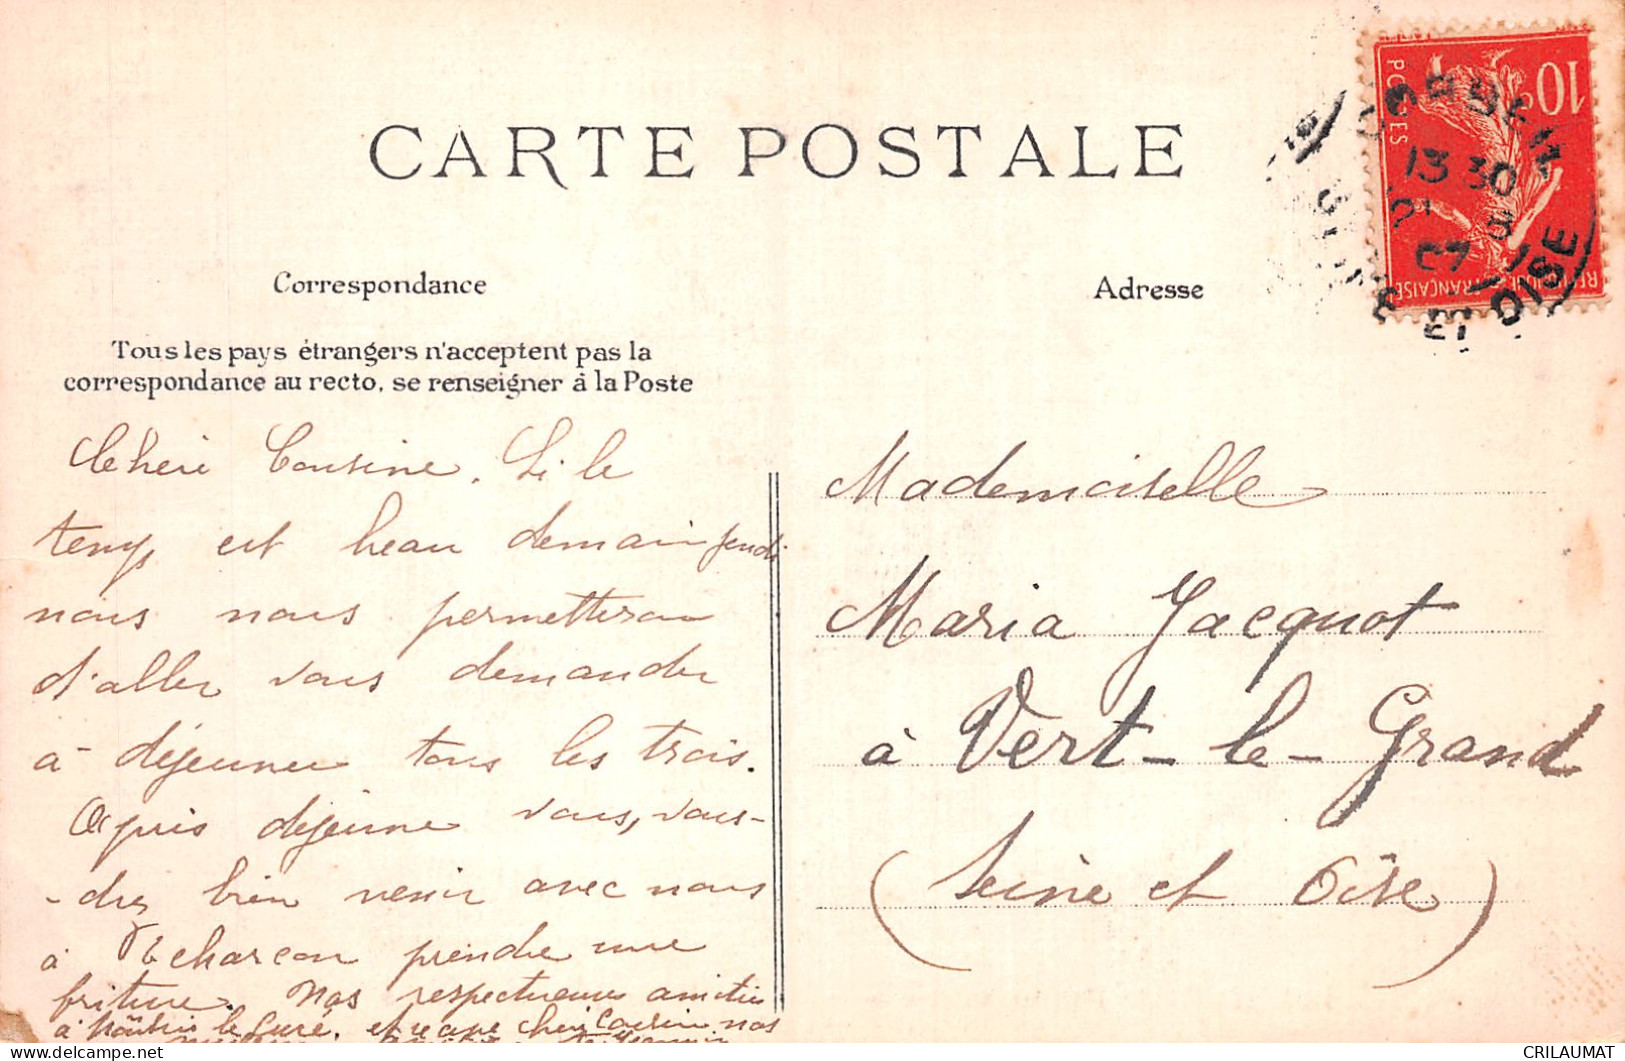 CARTE POSTALE
Correspondance
Adresse
Tous les pays étrangers n'acceptent pas la
correspondance au recto, se renseigner à la Poste
10c
POSTES
13 30
07
ET OISE
Cousine. Si le
temps est beau demain jeudi
nous nous permetteron
d'aller vous demander
à déjeuner tous les trois.
Apris déjeune vous, vous-
-drez bien venir avec nous
à Echarcon prendre une
friture. Nos respectueuses amitiés
à le Curé. et cousin nos
Mademoiselle
Maria Jacquot
à Vert-le-Grand
(Seine et Oise)
CRILAUMAT